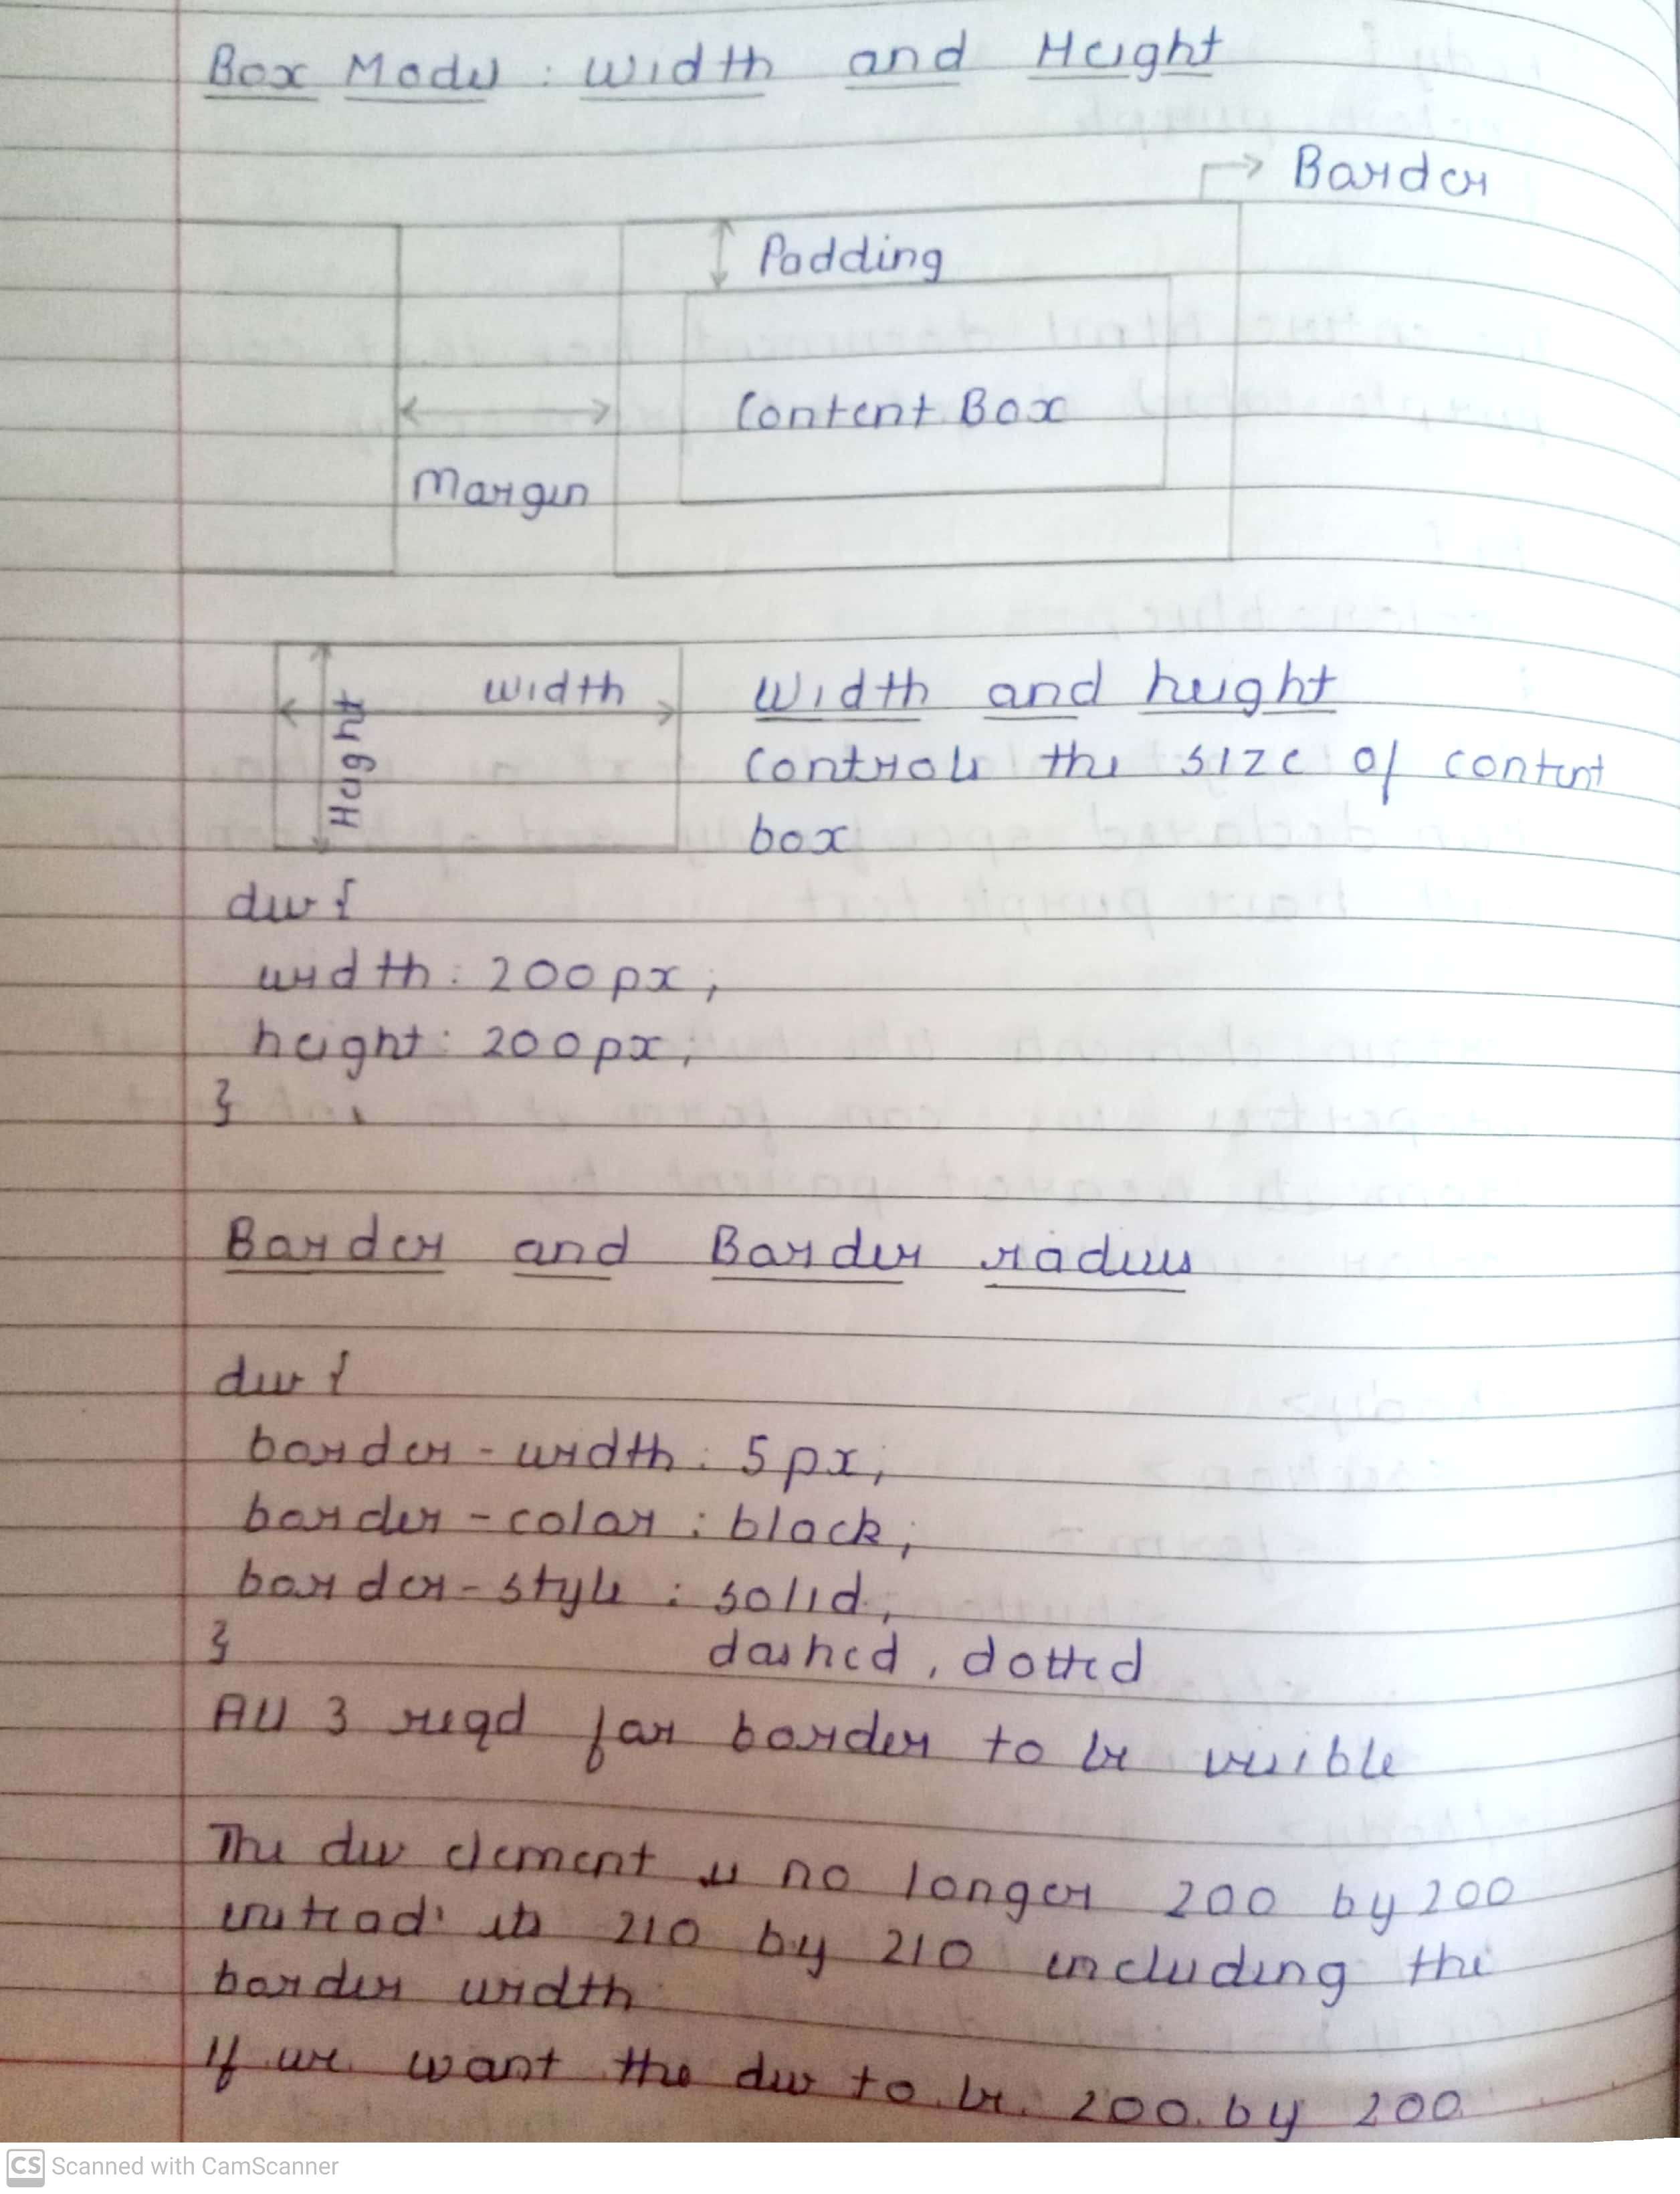 Box Model : Width and Height
Border
Padding
Content Box
Margin
Width
Height
Width and height
Controls the size of content
box
div {
width : 200px;
height : 200px;
}
Border and Border radius
div {
border-width : 5px;
border-color : black;
border-style : solid,
dashed, dotted
}
All 3 reqd for border to be visible
The div element is no longer 200 by 200
instead its 210 by 210 including the
border width
If we want the div to be 200 by 200
CS Scanned with CamScanner